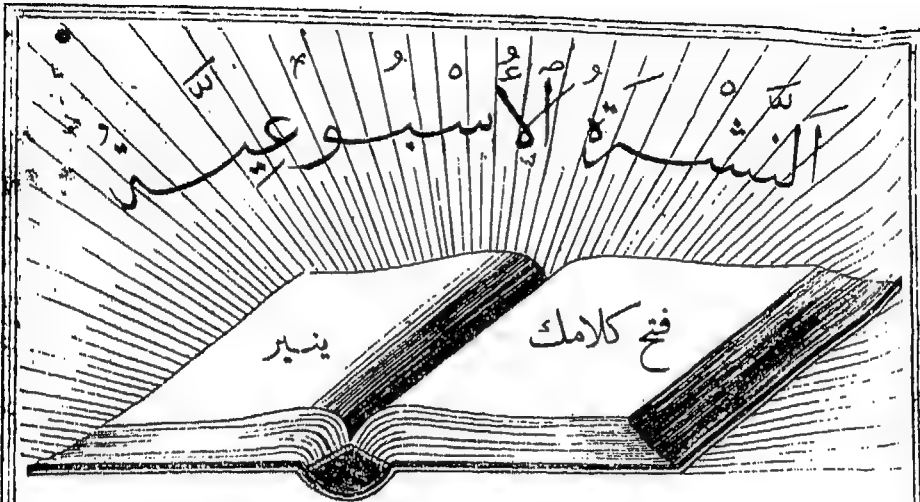 اَلنَّشْرَةُ الْأُسْبُوعِيَّةُ
فتح كلامك ينير